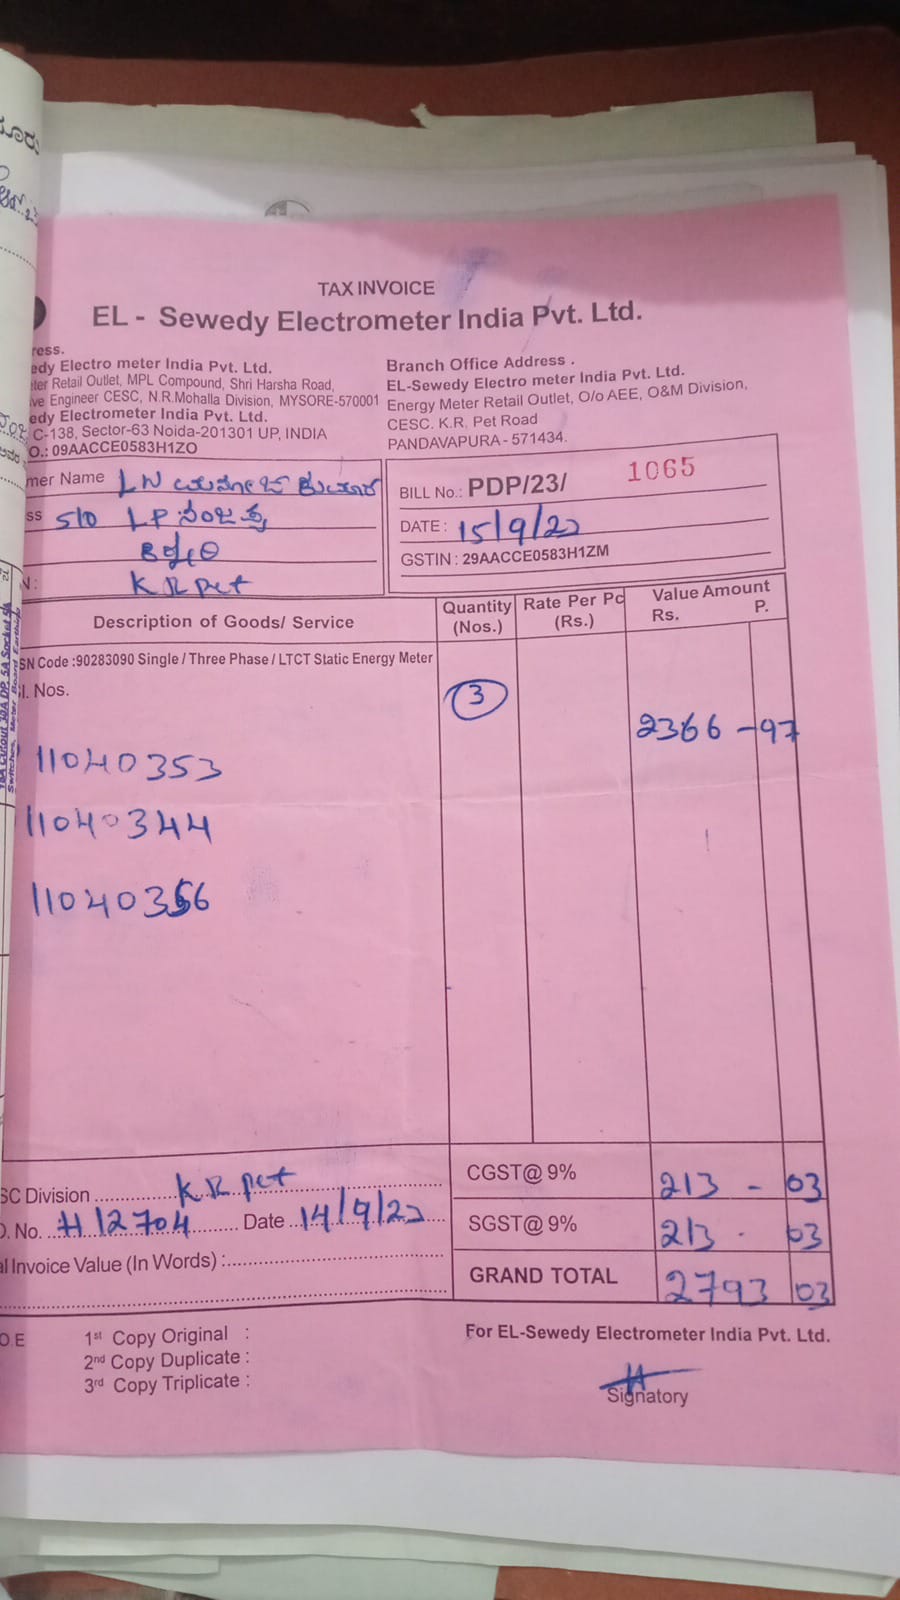 TAX INVOICE
EL - Sewedy Electrometer India Pvt. Ltd.
ress.
edy Electro meter India Pvt. Ltd.
ter Retail Outlet, MPL Compound, Shri Harsha Road,
ve Engineer CESC, N.R.Mohalla Division, MYSORE-570001
edy Electrometer India Pvt. Ltd.
C-138, Sector-63 Noida-201301 UP, INDIA
O.: 09AACCE0583H1ZO
Branch Office Address .
EL-Sewedy Electro meter India Pvt. Ltd.
Energy Meter Retail Outlet, O/o AEE, O&M Division,
CESC. K.R, Pet Road
PANDAVAPURA - 571434.
mer Name LN
ss S/O LP
K R pet
BILL No.: PDP/23/ 1065
DATE : 15/9/23
GSTIN : 29AACCE0583H1ZM
Description of Goods/ Service Quantity (Nos.) Rate Per Pc (Rs.) Value Amount Rs. P.
SN Code :90283090 Single / Three Phase / LTCT Static Energy Meter
l. Nos.
3
2366 - 97
11040353
11040344
11040356
SC Division K R pet
O. No. H12704 Date 14/9/23
al Invoice Value (In Words) :
CGST@ 9% 213 - 03
SGST@ 9% 213 . 03
GRAND TOTAL 2793 03
O.E 1st Copy Original :
2nd Copy Duplicate :
3rd Copy Triplicate :
For EL-Sewedy Electrometer India Pvt. Ltd.
Signatory